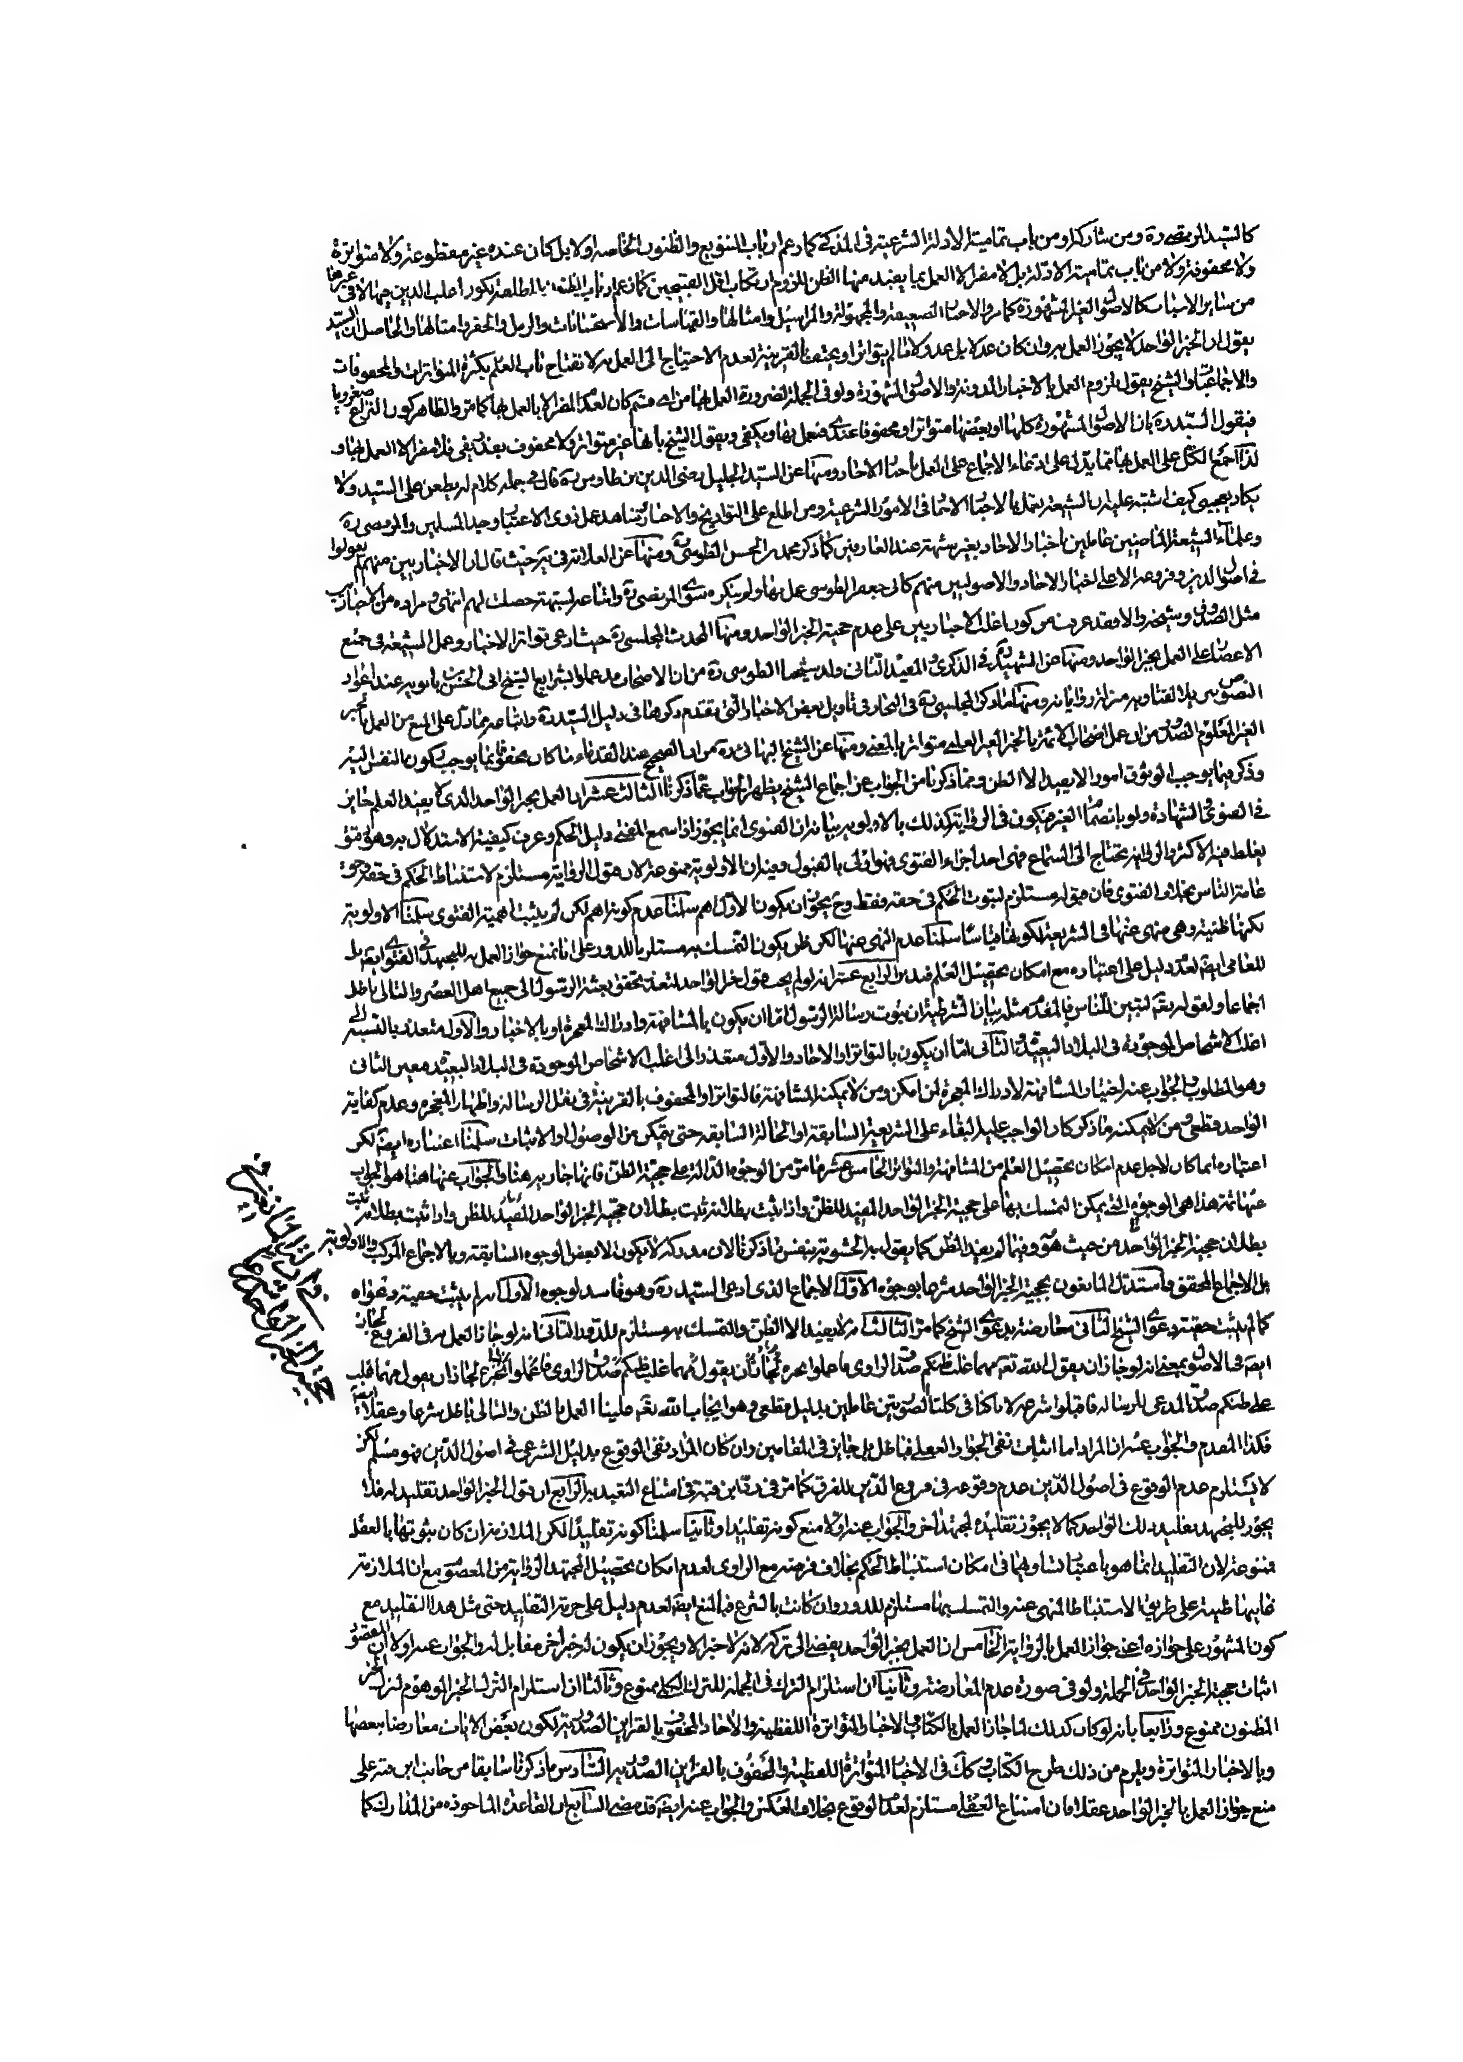 كالسيد المرتضى ره ومن شاركه او من باب تمامية الادلة الشرعية في المذكى كما زعم ارباب التنويع والظنون الخاصه اولا بل كان عنده غير مقطوعة ولا متواترة
ولا محفوفة ولا من باب تمامية الادلة بل لا مفر الا العمل بما يفيد منها الظن للزوم ارتكاب اقل القبيحين كما زعم ارباب الظنة
من سائر الاسباب كالاصول الغير المشهورة كما مر والاخبار الضعيفة والمجهولة والمراسيل وامثالها والقياسات والاستحسانات والرمل والجفر وامثالها والحاصل ان السيد
يقول ان الخبر الواحد لا يجوز العمل به وان كان عدلا بل عدولا ما لم يتواتر او يحتف بالقرينة لعدم الاحتياج الى العمل به لانفتاح باب العلم بكثرة المتواترات والمحفوفات
والاجماعيات والشيخ يقول بلزوم العمل بالاخبار المدونة والاصول المشهورة ولو في الجملة لضرورة العمل بها كان لعدم المفر الا بالعمل بها كما مر والظاهر كون النزاع صغرويا
فيقول السيد ره بان الاصول المشهورة كلها او بعضها متواتر او محفوفا عندي فنعمل بها ويكفي ويقول الشيخ بانها غير متواتر ولا محفوف بعد فلا مفر الا العمل بها و
لذا اجمع الكل على العمل بها مما يدل على ادعاء الاجماع على العمل باخبار الآحاد ومنها عن السيد الجليل رضى الدين بن طاوس ره قال في جملة كلام له يطعن على السيد ولا
يكاد تعجبي كيف اشتبه عليه ان الشيعة يعمل باخبار الآحاد في الامور الشرعية ومن اطلع على التواريخ والاخبار وشاهد عمل ذوي الاعتبار وجد المسلمين والمرتضى ره
وعلماء الشيعة الماضين عاملين باخبار الآحاد بغير شبهة عند العارفين كما ذكر محمد بن الحسن الطوسي ومنها عن العلامة في حيث قال ان الاخباريين منهم لم يعولوا
في اصول الدين وفروعه الا على اخبار الآحاد والاصوليين منهم كابي جعفر الطوسي عمل بها ولم ينكره سوى المرتضى ره واتباعه لشبهة حصلت لهم انتهى ومراده من الاخباريين
مثل الصدوق وشيخه والا فقد عرفت من كون اغلب الاخباريين على عدم حجية الخبر الواحد ومنها المحدث المجلسي ره حيث ادعى تواتر الاخبار وعمل الشيعة في جميع
الاعصار على العمل بخبر الواحد ومنها عن الشهيد ره في الذكرى والمفيد الثاني ولد شيخنا الطوسي ره من ان الاصحاب قد عملوا بشرايع الشيخ ابي الحسن بن بابويه عند اعواز
النصوص تنزيلا لفتاويه منزلة رواياته ومنها ما ذكره المجلسي ره في البحار في تاويل بعض الاخبار التي تقدم ذكرها في دليل السيد ره واتباعه مما دل على المنع من العمل بالخبر
الغير المعلوم الصدور من ان عمل اصحاب الائمة بالخبر الغير العلمي متواتر بالمعنى ومنها عن الشيخ البهائي ره من ان الصحيح عند القدماء ما كان محفوفا بما يوجب سكون النفس اليه
وذكر فيما يوجب الوثوق امورا لا يفيد الا الظن ومما ذكرنا من الجواب عن اجماع الشيخ يظهر الجواب عما ذكرنا الثالث عشر ان العمل بخبر الواحد الذي لا يفيد العلم جايز
في الفتوى والشهادة ولو بانضمام الغير فيكون في الرواية كذلك بالاولوية بيانه ان الفتوى انما يجوز اذا سمع المفتي دليل الحكم وعرف كيفية الاستدلال به وهو
يغلط فيه الاكثر والرواية يحتاج الى السماع فهي احد اجزاء الفتوى فهو اولى بالقبول وفيه ان الاولوية ممنوعة لان قبول الرواية مستلزم لاستنباط الحكم في حقه وحق
عامة الناس بخلاف الفتوى فان قبوله مستلزم لثبوت الحكم في حقه فقط وح يجوز ان يكون الاول اهم سلمنا عدم كونه اهم لكن لم يثبت اهمية الفتوى سلمنا الاولوية
لكنها ظنية وهي منهى عنها في الشريعة لكونها قياسا سلمنا عدم النهي عنها لكن ظن يكون التمسك به مستلزما للدور على انا نمنع جواز العمل به للمجتهد في الفتوى ايضا بل
للعامي ايضا لعدم دليل على اعتباره مع امكان تحصيل العلم فتدبر الرابع عشر انه لو لم يجب قبول خبر الواحد لتعذر تحقق بعثة الرسول الى جميع اهل العصر والتالي باطل
اجماعا ولقوله تعم لتبين للناس فالمقدم مثله بيان الشرطية ان ثبوت رسالة الرسول اما ان يكون بالمشافهة وادراك المعجزة او بالاخبار والاول متعذر بالنسبة الى
اغلب الاشخاص الموجودة في البلاد البعيدة والثاني اما ان يكون بالتواتر او الآحاد والاول متعذر الى اغلب الاشخاص الموجودة في البلاد البعيدة فتعين الثاني
وهو المطلوب والجواب عنه اختيار المشافهة لادراك المعجزة لمن امكن ومن لا يمكنه المشافهة فالتواتر او المحفوف بالقرينة في نقل الرسالة واظهار المعجزه وعدم كفاية
الواحد قطعي ومن لا يمكنه ما ذكر كان الواجب عليه البقاء على الشريعة السابقة او الحالة السابقة حتى يتمكن من الوصول والاثبات سلمنا اعتباره ايضا لكن
اعتباره انما كان لاجل عدم امكان تحصيل العلم من المشافهة والتواتر الخامس عشر ما مر من الوجوه الدالة على حجية الظن فانها جارية هنا والجواب عنها هنا هو الجواب
عنها ثمة هذا هي الوجوه التي يمكن التمسك بها على حجية الخبر الواحد المفيد للظن واذا ثبت بطلانه ثبت بطلان حجية الخبر الواحد المفيد للظن واذا ثبت بطلانه ثبت
بطلان حجية الخبر الواحد من حيث هو وفيما لم يفيد الظن كما يقول به الحشوية بنفس ما ذكرنا لان مدركه لا يكون الا بعض الوجوه السابقة وبالاجماع المركب والاولوية
بل الاجماع المحقق واستدل المانعون بحجية الخبر الواحد شرعا بوجوه الاول الاجماع الذي ادعى السيد ره وهو فاسد لوجوه الاول انه لم يثبت حجيته ودعواه
كما لم يثبت حقيته دعوى الشيخ الثاني معارضته بدعوى الشيخ كما مر الثالث انه لا يفيد الا الظن والتمسك به مستلزم للدور الثاني انه لو جاز العمل به في الفروع لجاز
ايضا في الاصول بمعنى انه لو جاز ان يقول الله تعم مهما غلب ظنكم صدق الراوي فاعملوا بخبره لجاز ان يقول مهما غلب
على ظنكم صدق المدعي للرسالة فاقبلوا شرعه لانا كنا في كلتا الصورتين عاملين بدليل قطعي وهو ايجاب الله تعم علينا العمل بالظن والتالي باطل شرعا وعقلا ايضا
فكذا المقدم والجواب عنه ان المراد اما اثبات نفي الجواز العقلي فباطل بل جايز في المقامين وان كان المراد نفي الوقوع بدليل الشرعي في اصول الدين فهو مسلم لكن
لا يستلزم عدم الوقوع في اصول الدين عدم وقوعه في فروع الدين للفرق كما مر في رد ابن قبة في امتناع التعبد به الرابع ان قبول الخبر الواحد تقليد له فلا
يجوز للمجتهد تقليد ذلك الواحد كما لا يجوز تقليده لمجتهد اخر والجواب عنه اولا منع كونه تقليدا وثانيا سلمنا كونه تقليدا لكن الملازمة ان كان ثبوتها بالعقل
فممنوعة لان التقليد انما هو باعتبار تساويهما في امكان استنباط الحكم بخلاف فرضه مع الراوي لعدم امكان تحصيل المجتهد الرواية من المعصوم مع ان الملازمة
غايتها ظنية على طريق الاستنباط المنهى عنه والتمسك بها مستلزم للدور وان كانت بالشرع فبالمنع ايضا لعدم دليل على حرمة التقليد حتى مثل هذا التقليد مع
كون المشهور على جوازه اعني جواز العمل بالرواية الخامس ان العمل بخبر الواحد يفضي الى تركه لانه لا خبر الا ويجوز ان يكون له خبر اخر مقابل له والجواب عنه اولا ان المقصود
اثبات حجية الخبر الواحد في الجملة ولو في صورة عدم المعارضة وثانيا ان استلزام الترك في الجملة للترك الكلي ممنوع وثالثا ان استلزام الترك الخبر الموهوم لترك الخبر
المظنون ممنوع ورابعا بانه لو كان كذلك لما جاز العمل بالكتاب والاخبار المتواترة اللفظية والآحاد المحفوف بالقراين الصدورية لكون بعض الايات معارضا بعضها
وبالاخبار المتواترة ويلزم من ذلك طرح الكتاب وكك في الاخبار المتواترة اللفظية والمحفوف بالقراين الصدورية السادس ما ذكرنا سابقا من جانب ابن قبة على
منع جواز العمل بالخبر الواحد عقلا فان امتناع العقلي مستلزم لعدم الوقوع بخلاف العكس والجواب عنه ايضا قد مضى السابع ان القاعدة الماخوذه من المدارك كما